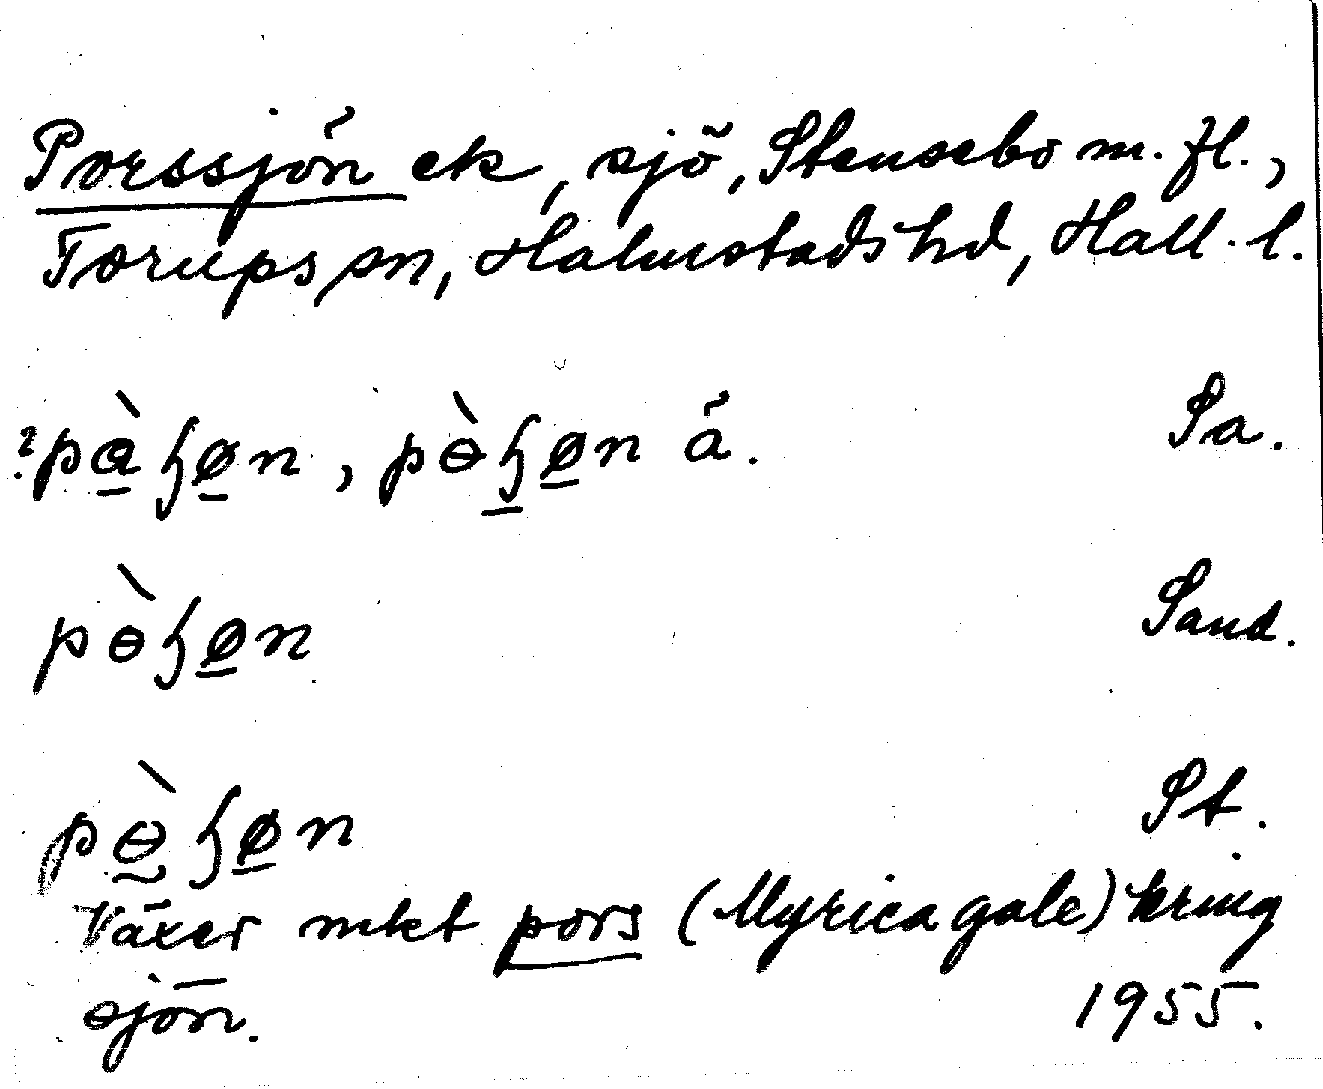 Porssjön ek, sjö, Stensebo m. fl.,
Torups sn, Halmstads hd, Hall. l.
?pàɧøn, pɵ̀ɧøn å. Sa.
pɵ̀ɧøn Sand.
pɵ̀ɧøn St.
Växer mkt pors (Myrica gale) kring
sjön. 1955.